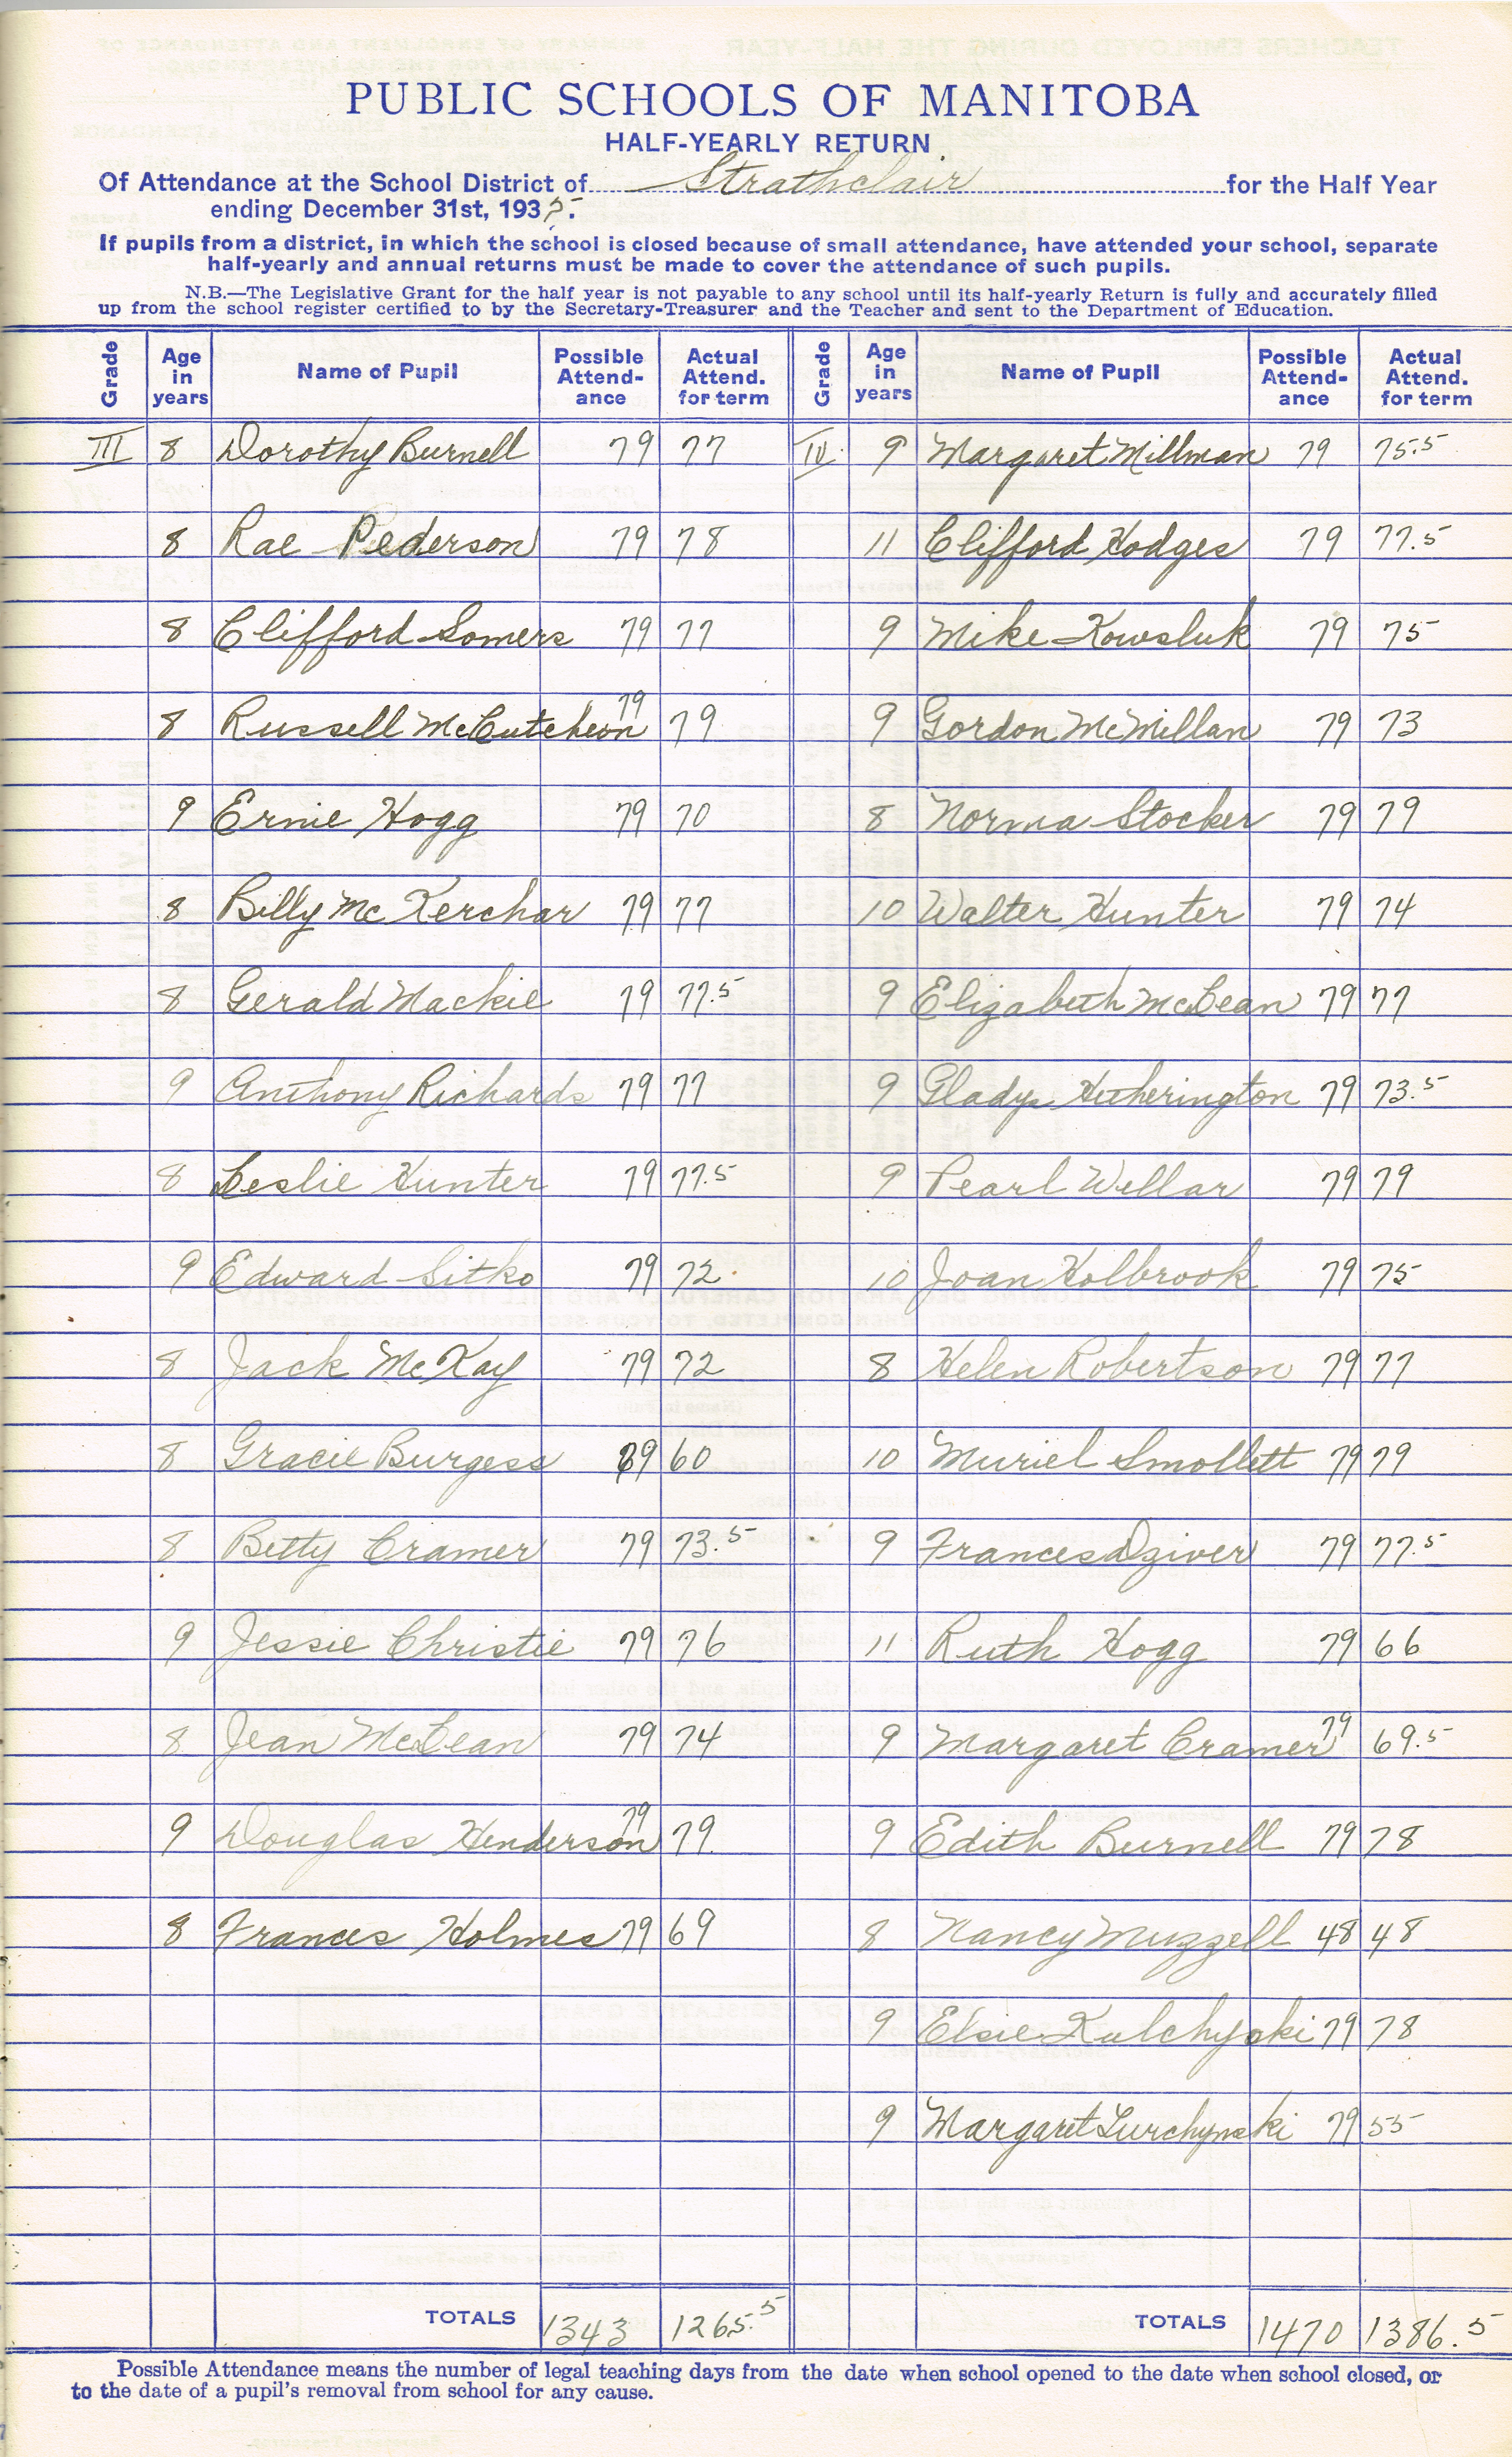 PUBLIC SCHOOLS OF MANITOBA
HALF-YEARLY RETURN
Of Attendance at the School District of Strathclair for the Half Year
ending December 31st, 1935.
If pupils from a district, in which the school is closed because of small attendance, have attended your school, separate
half-yearly and annual returns must be made to cover the attendance of such pupils.
N.B.—The Legislative Grant for the half year is not payable to any school until its half-yearly Return is fully and accurately filled
up from the school register certified to by the Secretary-Treasurer and the Teacher and sent to the Department of Education.
Grade Age in years Name of Pupil Possible Attend-ance Actual Attend. for term Grade Age in years Name of Pupil Possible Attend-ance Actual Attend. for term
III 8 Dorothy Burnell 79 77 IV 9 Margaret Millman 79 75.5
8 Rae Pederson 79 78 11 Clifford Hodges 79 77.5
8 Clifford Somers 79 77 9 Mike Kowsluk 79 75
8 Russell McCutcheon 79 79 9 Gordon McMillan 79 73
9 Ernie Hogg 79 70 8 Norma Stocker 79 79
8 Billy McKerchar 79 77 10 Walter Hunter 79 74
8 Gerald Mackie 79 77.5 9 Elizabeth McLean 79 77
9 Anthony Richards 79 77 9 Gladys Hetherington 79 73.5
8 Leslie Hunter 79 77.5 9 Pearl Wellar 79 79
9 Edward Sitko 79 72 10 Joan Holbrook 79 75
8 Jack McKay 79 72 8 Helen Robertson 79 77
8 Gracie Burgess 79 60 10 Muriel Smollett 79 79
8 Betty Cramer 79 73.5 9 Frances Dziver 79 77.5
9 Jessie Christie 79 76 11 Ruth Hogg 79 66
8 Jean McLean 79 74 9 Margaret Cramer 79 69.5
9 Douglas Henderson 79 79 9 Edith Burnell 79 78
8 Frances Holmes 79 69 8 Nancy Muzzell 48 48
9 Elsie Kulchyski 79 78
9 Margaret Turchynski 79 55
TOTALS 1343 1265.5 TOTALS 1470 1386.5
Possible Attendance means the number of legal teaching days from the date when school opened to the date when school closed, or
to the date of a pupil's removal from school for any cause.